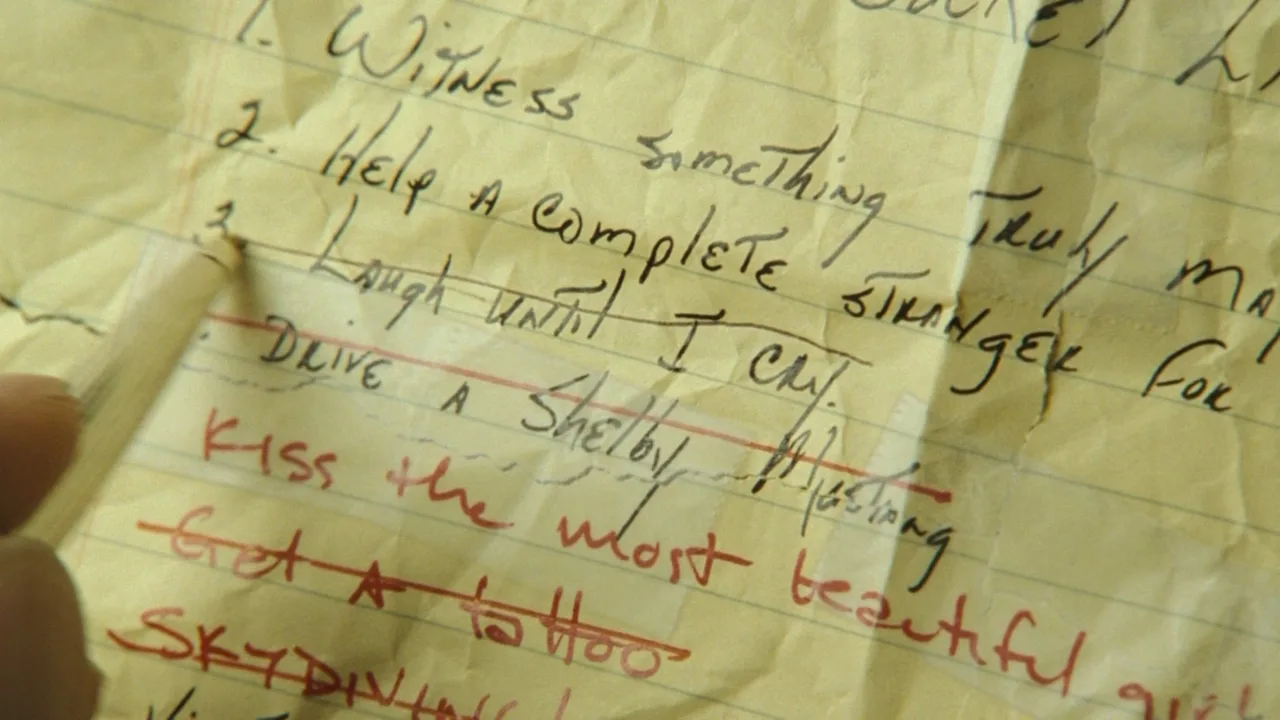 1. Witness something Truly
2. Help a complete stranger for
3. Laugh until I cry.
. Drive a Shelby Mustang
Kiss the most beautiful
Get A tattoo
SKYDIVING